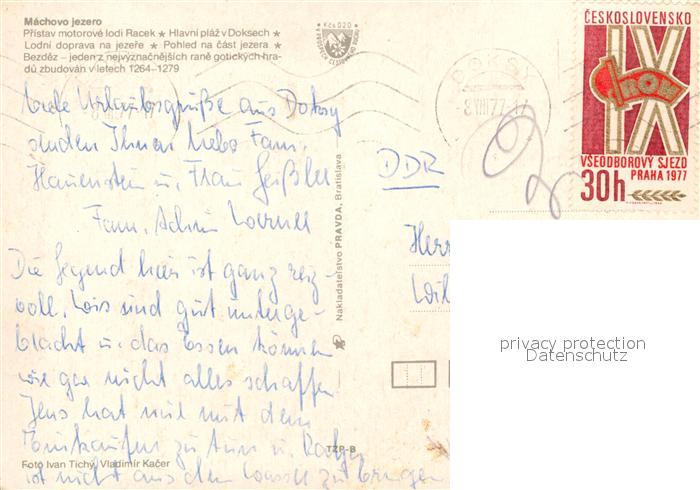 Máchovo jezero
Přístav motorové lodi Racek ★ Hlavní pláž v Doksech ★
Lodní doprava na jezeře ★ Pohled na část jezera ★
Bezděz – jeden z nejvýznačnějších raně gotických hra-
dů zbudován v letech 1264–1279
Kčs 0,20
ČESKOSLOVENSKO
IX
ROH
VŠEODBOROVÝ SJEZD
PRAHA 1977
30h
DOKSY
-8.VIII.77.-17
Urlaubsgrüße aus Doksy
senden Ihnen liebe Fam.
Hauenstein u. Frau Geißler
Fam.
DDR
Herr
Die Gegend hier ist ganz reiz-
voll. Wir sind gut unterge-
bracht u. das Essen können
wir gar nicht alles schaffen.
Jens hat mit dem
zu tun u.
ist nicht aus dem Wasser zu bringen
Nakladatelství PRAVDA, Bratislava
TZP-B
Foto Ivan Tichý, Vladimír Kačer
privacy protection
Datenschutz